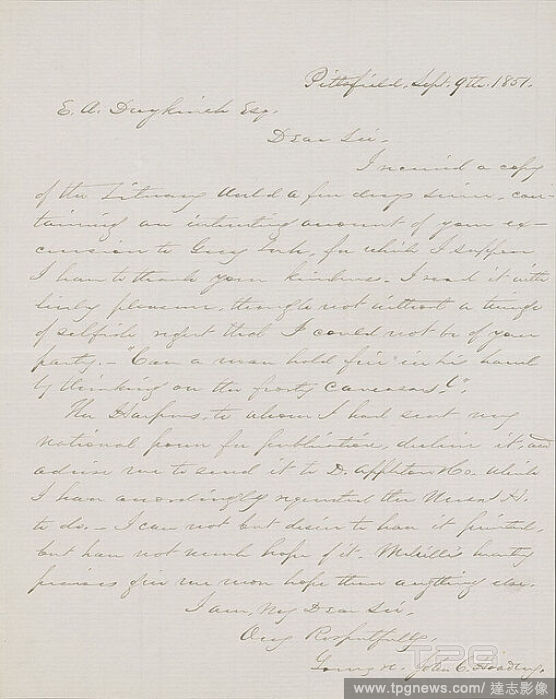 Pittsfield, Sept. 9th. 1851.
E. A. Duyckinck Esq.
Dear Sir.
I received a copy
of the Literary World a few days since, con-
taining an interesting account of your ex-
cursion to Grey Lock, for which I suppose
I have to thank your kindness. I read it with
lively pleasure, though not without a twinge
of selfish regret that I could not be of your
party. - "Can a man hold fire in his hand
by thinking on the frosty Caucasus?".
The Harpers, to whom I had sent my
national poem for publication, decline it, and
advise me to send it to D. Appleton & Co. which
I have accordingly requested the Messrs H.
to do. - I can not but desire to have it printed,
but have not much hope of it. Melville's hearty
praises give me more hope than anything else.
I am, My Dear Sir.
Very Respectfully,
Yours &c. John C. Hoadley.
TPG
www.tpgnews.com / 達志影像